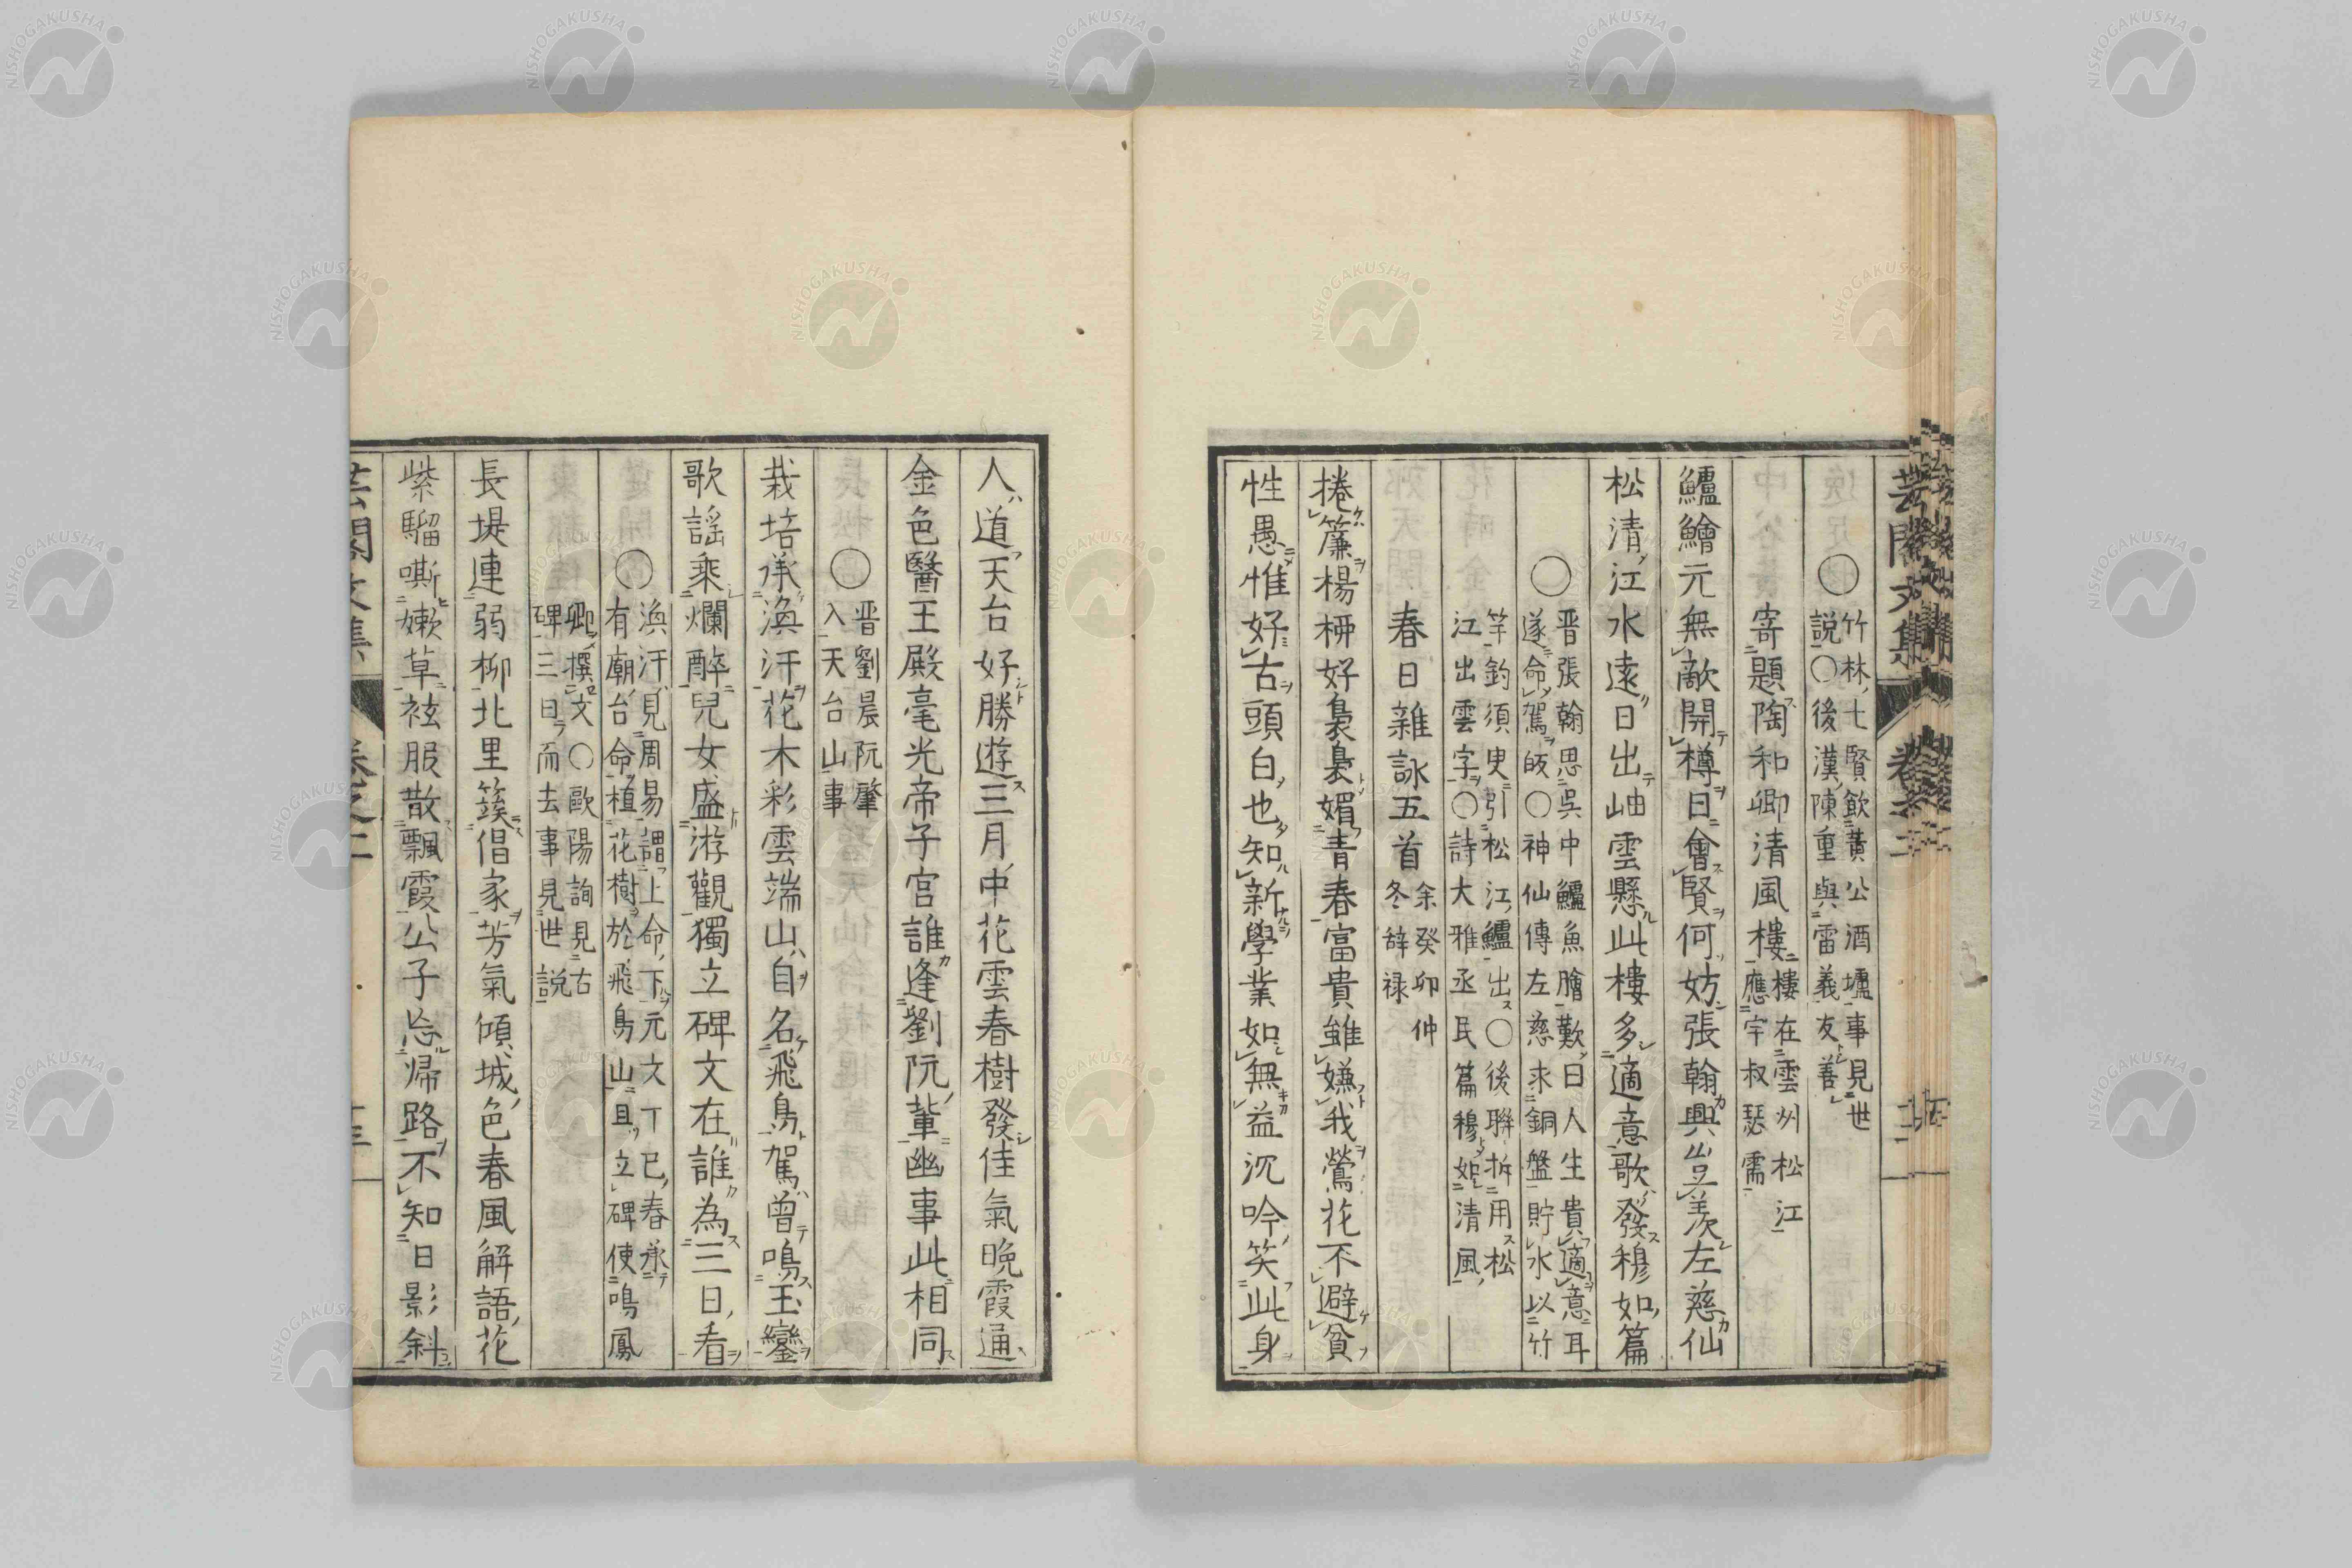 芸閣文集 卷之二
○竹林七賢飲黃公酒壚事見世
説○後漢陳重與雷義友善
寄題陶和卿清風樓 樓在雲州松江
應宇叔瑟需
鱸鱠元無敵開樽日會賢何妨張翰興豈羨左慈仙
松清江水遠日出岫雲懸此樓多適意歌發穆如篇
○晋張翰思吳中鱸魚膾歎曰人生貴適意耳
遂命駕皈○神仙傳左慈求銅盤貯水以竹
竿釣須叓引松江鱸出○後聯拆用松
江出雲字○詩大雅烝民篇穆如清風
春日雜詠五首 余癸卯仲
冬辞禄
捲簾楊柳好裊裊媚青春富貴雖嫌我鶯花不避貧
性愚惟好古頭白也知新學業如無益沉吟笑此身
人道天台好勝遊三月中花雲春樹發佳氣晩霞通
金色醫王殿毫光帝子宫誰逢劉阮輩幽事此相同
○晋劉晨阮肇
入天台山事
栽培承渙汗花木彩雲端山自名飛鳥駕曾鳴玉鑾
歌謡乘爛醉兒女盛游觀獨立碑文在誰為三日看
○渙汗見周易謂上命下元文丁巳春承
有廟台命植花樹於飛鳥山且立碑使鳴鳳
卿撰文○歐陽詢見古
碑三日而去事見世説
長堤連弱柳北里簇倡家芳氣傾城色春風解語花
紫騮嘶嫩草袨服散飄霞公子忘帰路不知日影斜
芸閣文集 卷之二 十三
NISHOGAKUSHA